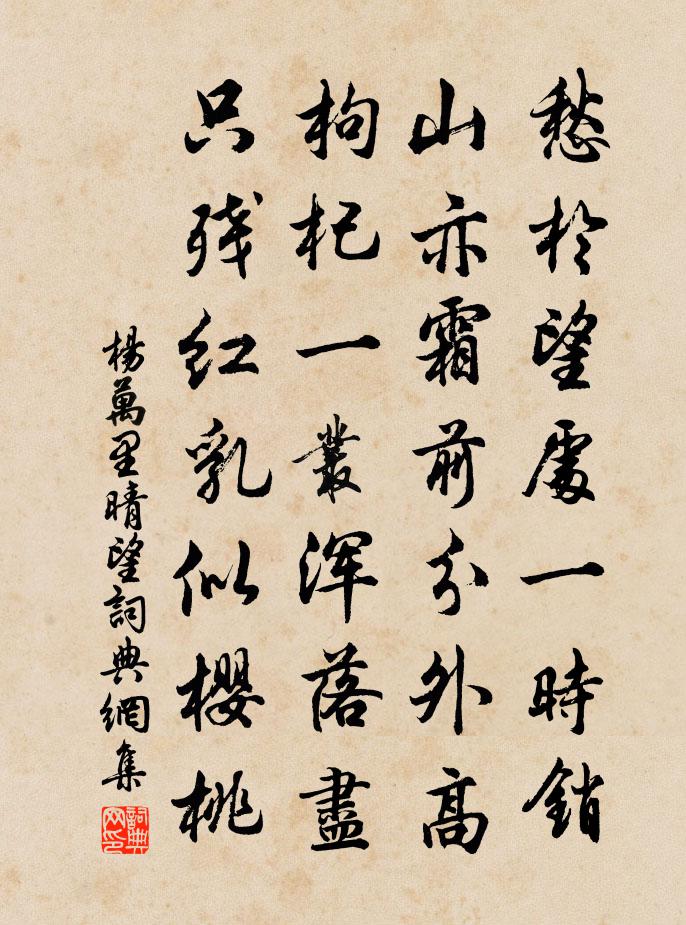 愁於望處一時銷
山亦霜前分外高
枸杞一叢渾落盡
只残红乳似櫻桃
楊萬里晴望詞典網集
詞典网印